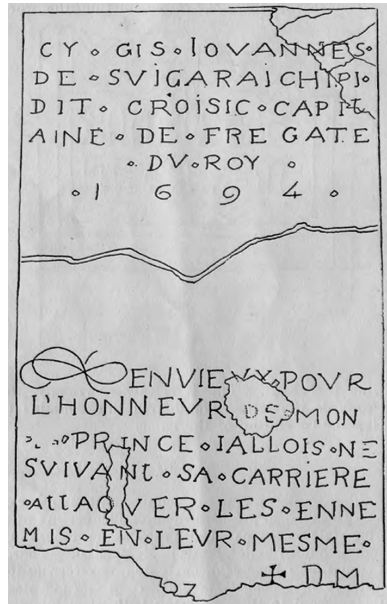 CY • GIS • IOVANNES •
DE • SVIGARAICHIPI •
DIT • CROISIC • CAPIT
AINE • DE • FREGATE
• DV • ROY •
• 1 6 9 4 •
ENVIEVX • POVR
L'HONNEVR DE MON
PRINCE • IALLOIS • NE
SVIVANt • SA • CARRIERE
• AttAQVER • LES • ENNE
MIS • EN • LEVR • MESME •
✝ D M